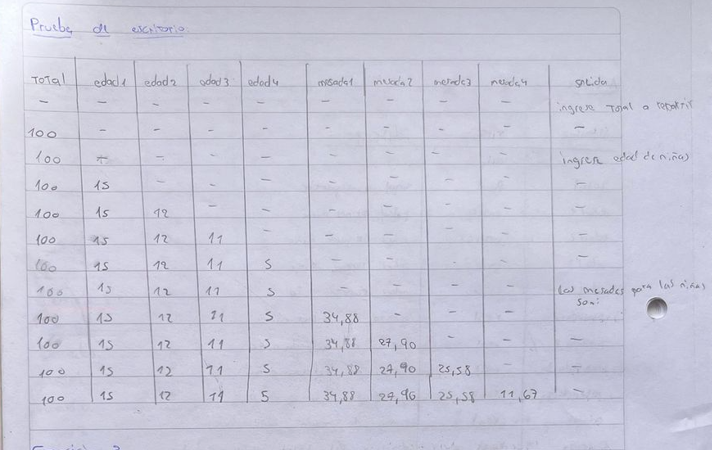 Prueba de escritorio
TOTAL edad1 edad2 edad3 edad4 mesada1 mesada2 mesada3 mesada4 salida
- - - - - - - - - ingrese total a repartir
100 - - - - - - - - -
100 - - - - - - - - ingrese edad de niñas
100 15 - - - - - - - -
100 15 12 - - - - - - -
100 15 12 11 - - - - - -
100 15 12 11 5 - - - - -
100 15 12 11 5 - - - - las mesadas para las niñas son:
100 15 12 11 5 34,88 - - - -
100 15 12 11 5 34,88 27,90 - - -
100 15 12 11 5 34,88 27,90 25,58 - -
100 15 12 11 5 34,88 27,90 25,58 11,67 -